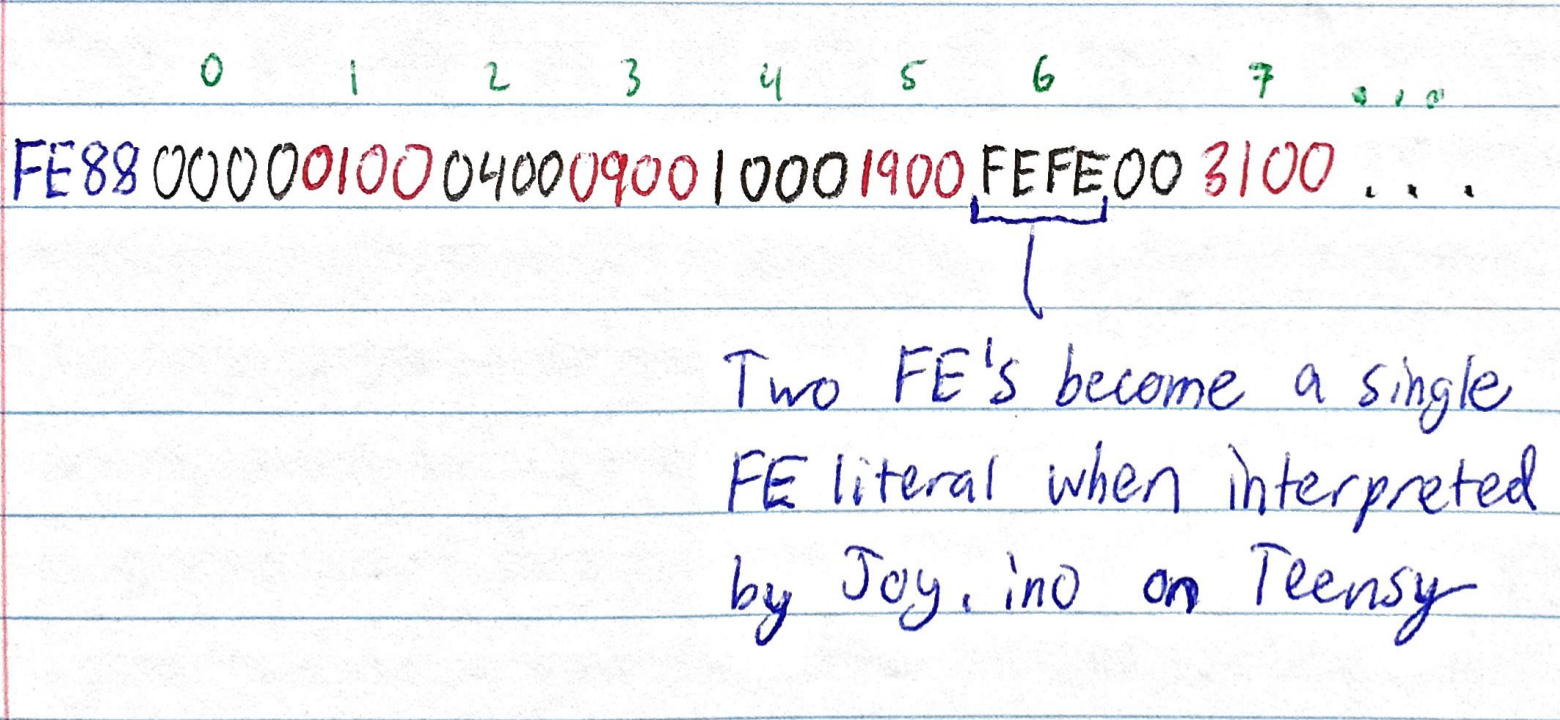 0 1 2 3 4 5 6 7 ...
FE88 0000 0100 0400 0900 1000 1900 FEFE00 3100 ...
Two FE's become a single
FE literal when interpreted
by Joy.ino on Teensy